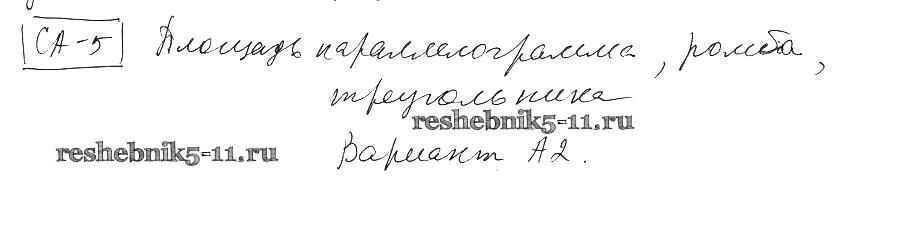 СА-5 Площадь параллелограмма, ромба,
треугольника
reshebnik5-11.ru
reshebnik5-11.ru Вариант А2.